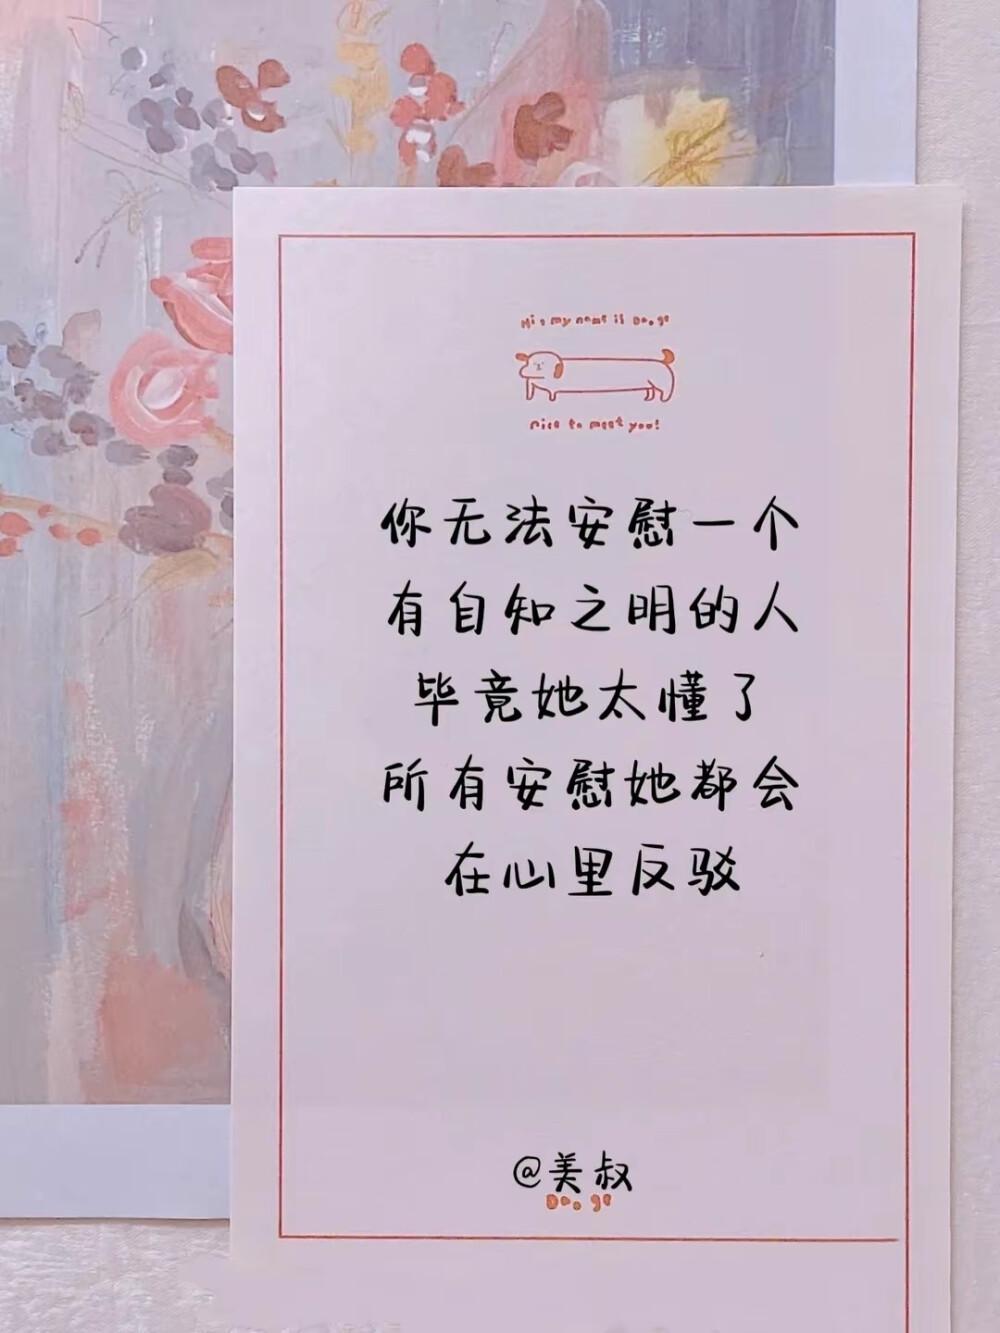 Hi, my name is Do.ge
nice to meet you!
你无法安慰一个
有自知之明的人
毕竟她太懂了
所有安慰她都会
在心里反驳
@美叔
Do.ge